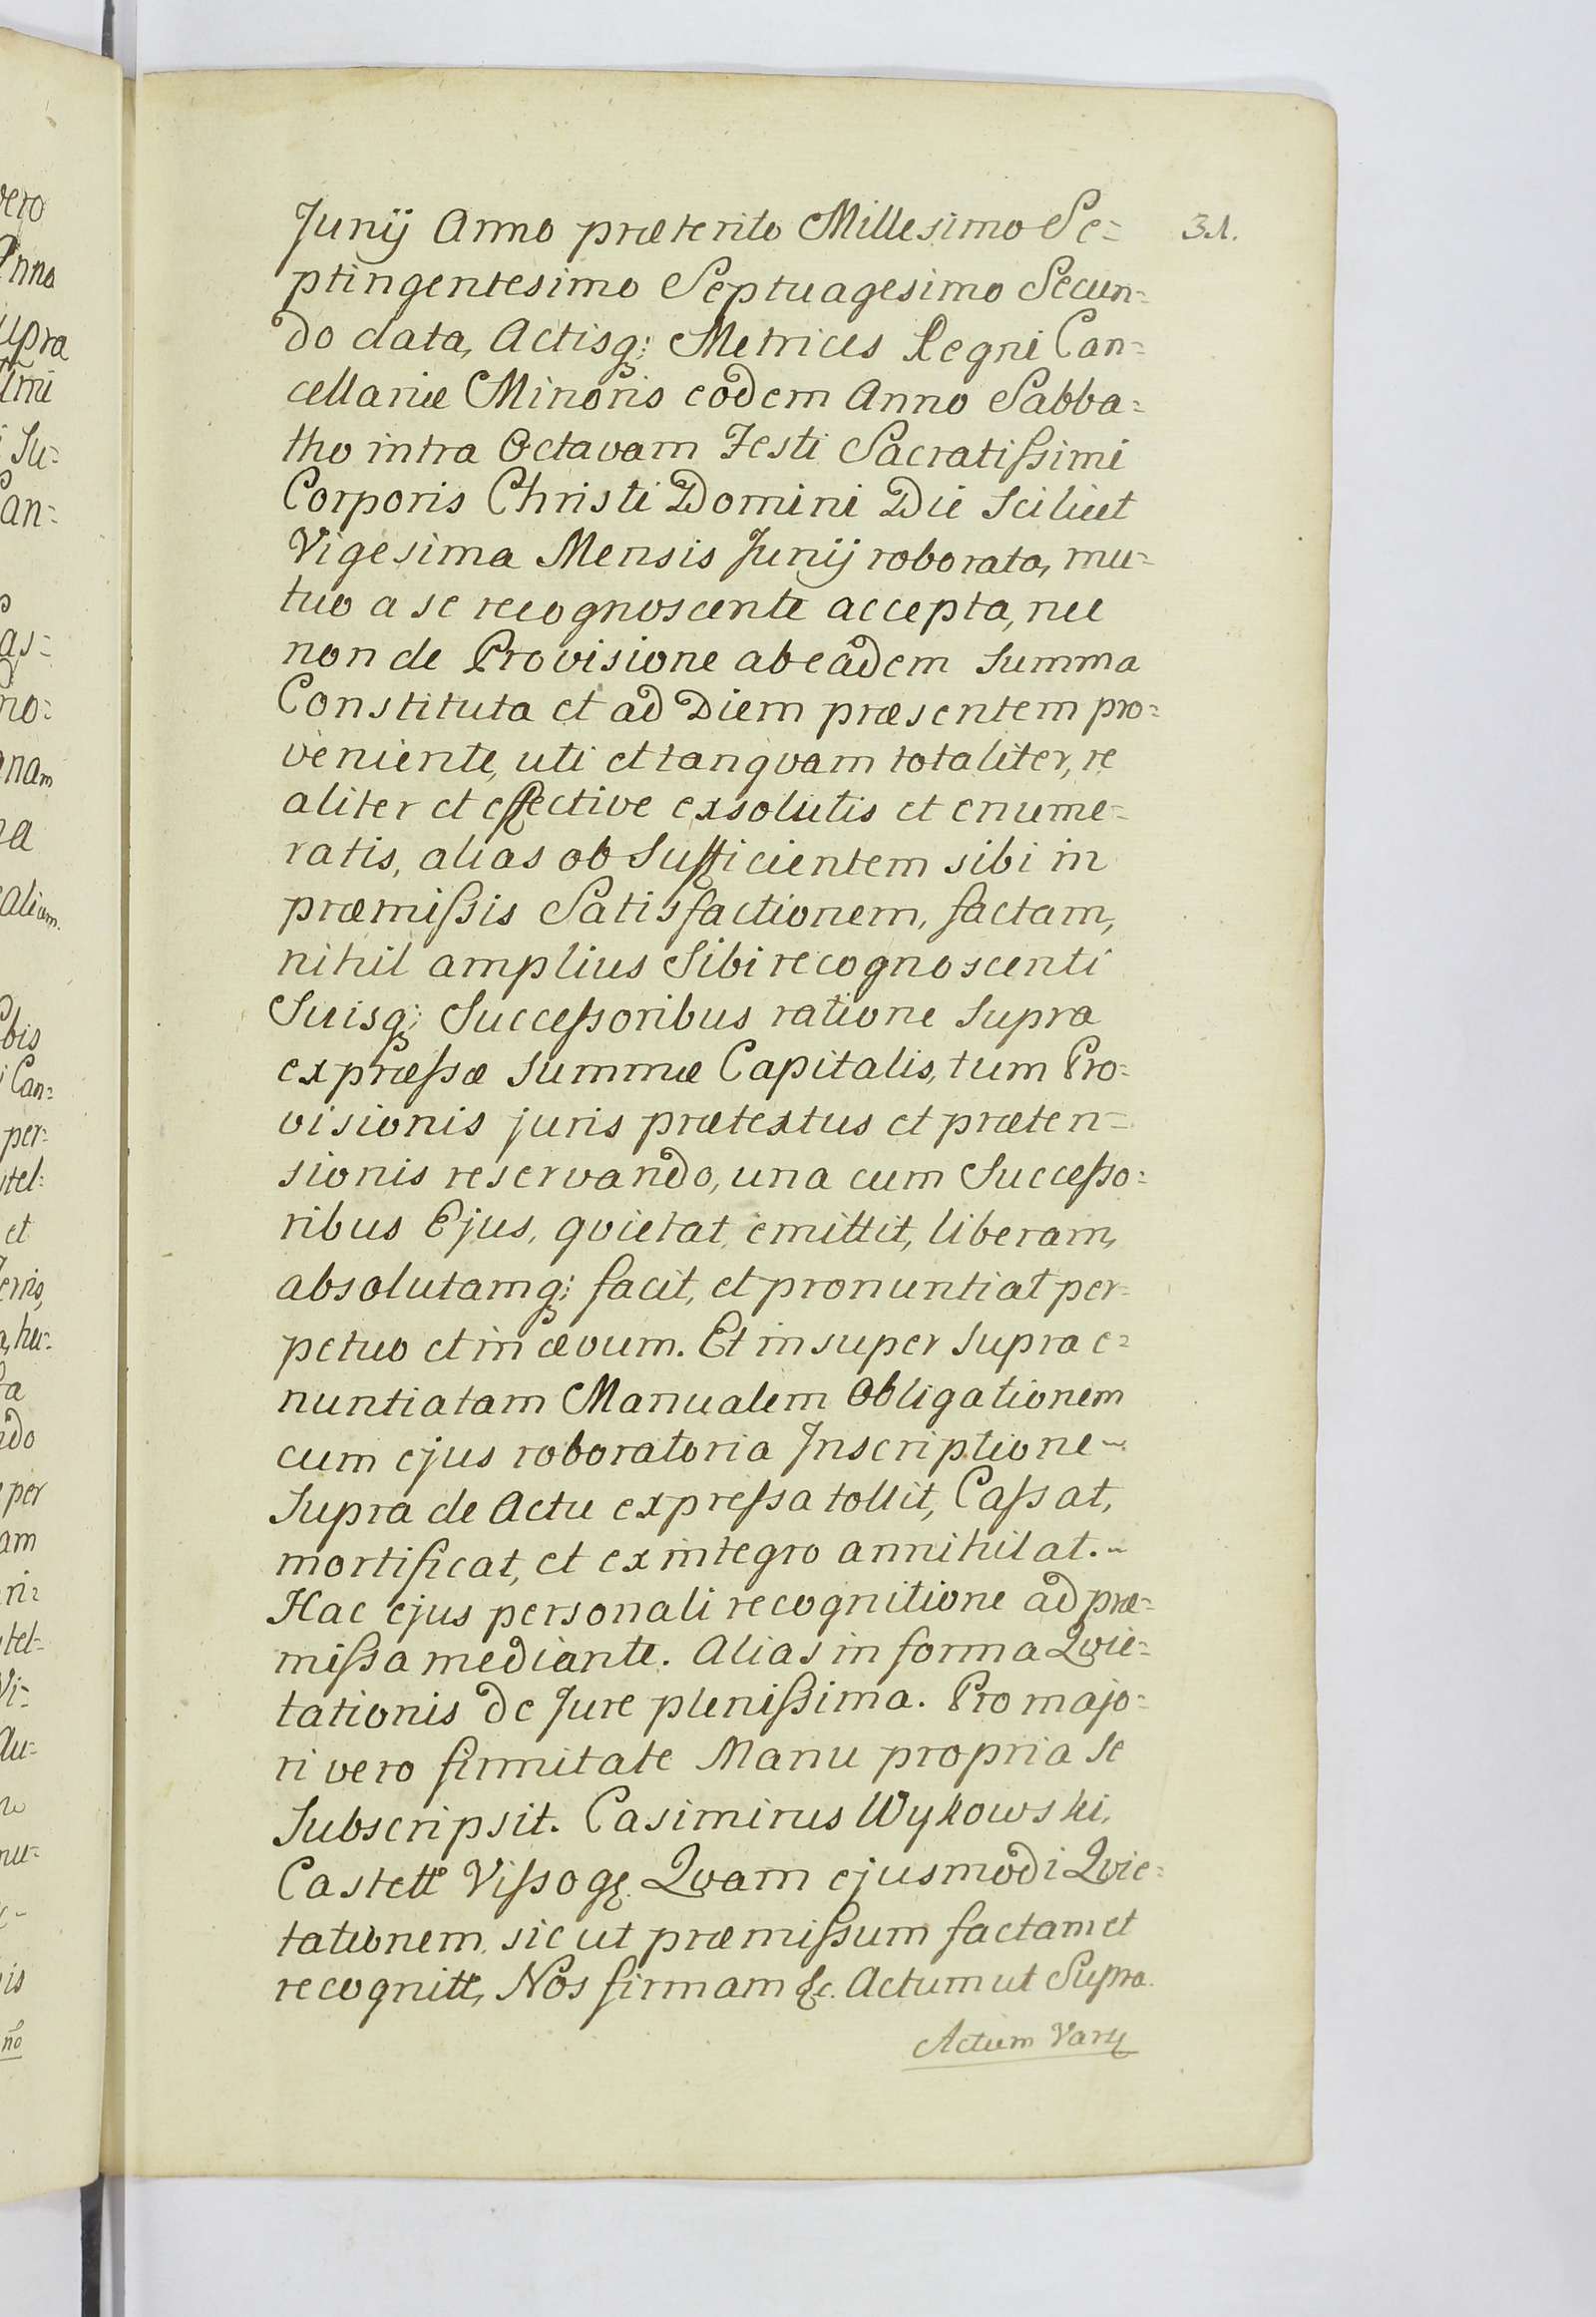 31.
Junij Anno præterito Millesimo Se=
ptingentesimo Septuagesimo Secun=
do data, Actisq; Metrices Regni Can=
cellariæ Minoris eodem Anno Sabba=
tho intra Octavam Festi Sacratißimi
Corporis Christi Domini Die scilicet
Vigesima Mensis Junij roborata, mu=
tuo a se recognoscente accepta, nec
non de Provisione ab eadem summa
Constituta et ad Diem præsentem pro=
veniente, uti et tanqvam totaliter, re
aliter et effective exsolutis et enume=
ratis, alias ob sufficientem sibi in
præmißis Satisfactionem, factam,
nihil amplius sibi recognoscenti
Suisq; Succeßoribus ratione supra
expræßæ summæ Capitalis, tum Pro=
visionis juris prætextus et præten=
sionis reservando, una cum Succeßo=
ribus Ejus, qvietat, emittit, liberam,
absolutamq; facit, et pronuntiat per=
petuo et in ævum. Et insuper supra e=
nuntiatam Manualem Obligationem
cum ejus roboratoria Jnscriptione~
supra de Actu expreßa tollit, Caßat,
mortificat, et ex integro annihilat.~
Hac ejus personali recognitione ad præ=
mißa mediante. Alias in forma Qvie=
tationis de Jure plenißima. Pro majo=
ri vero firmitate Manu propria se
subscripsit. Casimirus Wykowski,
Castell Vißog. Qvam ejusmodi Qvie=
tationem, sic ut præmißum factam et
recognitt, Nos firmam &c. Actum ut Supra.
Actum Vars